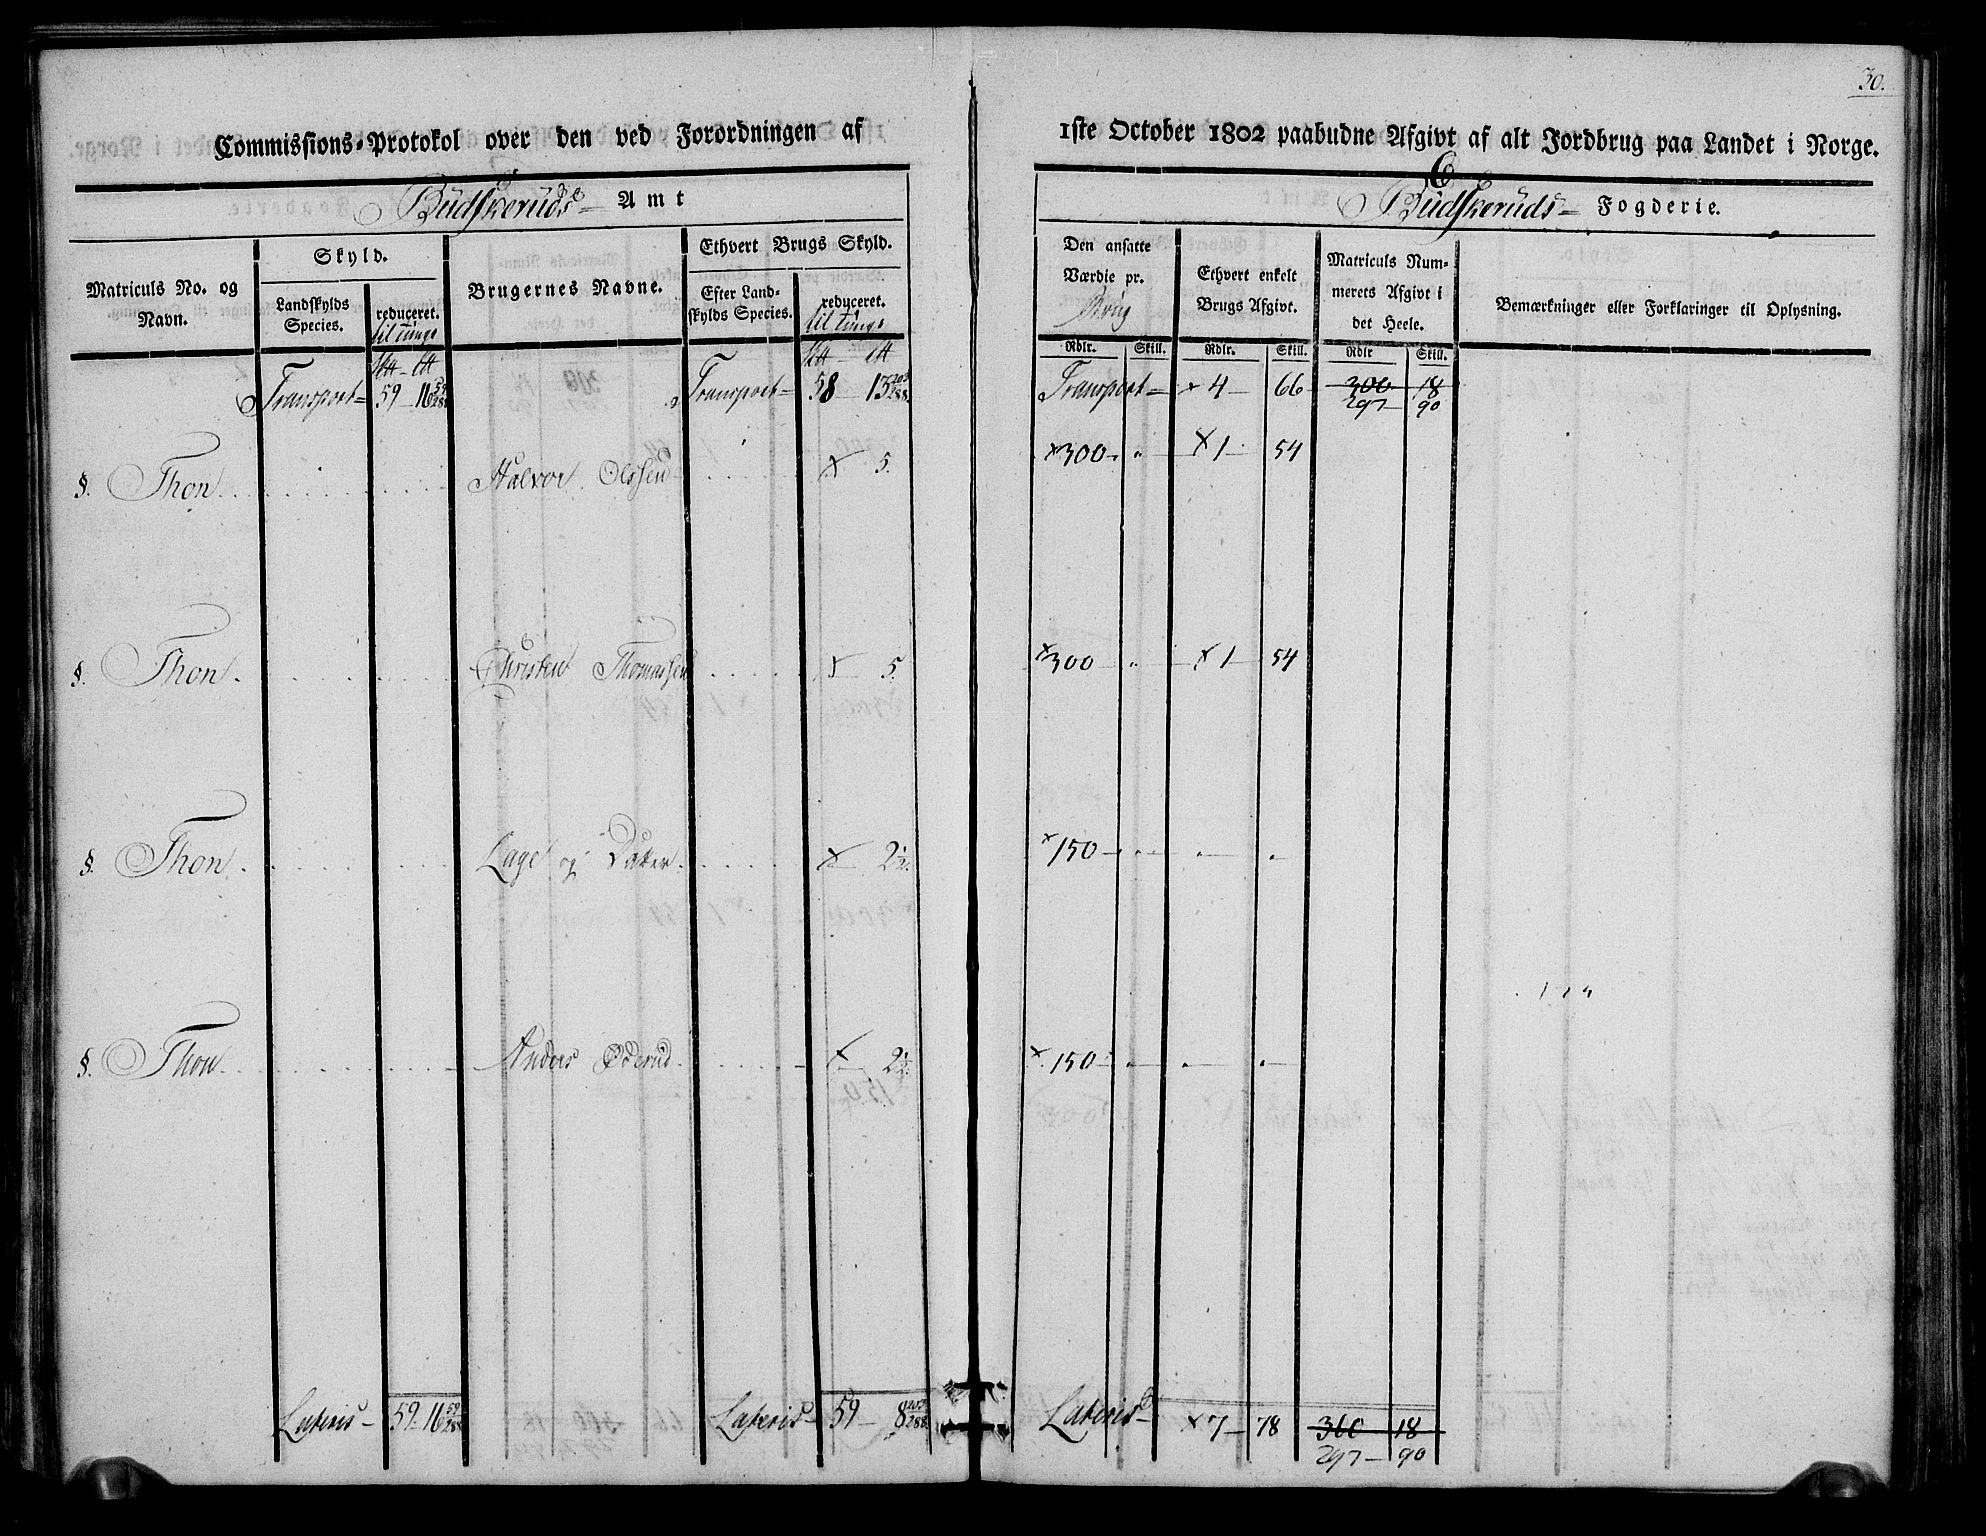 30.
Commissions-Protokol over den ved Forordningen af 1ste October 1802 paabudne Afgivt af alt Jordbrug paa Landet i Norge.
Budskeruds Amt
Budskeruds Fogderie.
Matriculs No. og Navn.
Skyld.
Landskylds Species.
reduceret.
til tunge
Brugernes Navne.
Ethvert Brugs Skyld.
Efter Landskylds Species.
reduceret.
til tunge
Den ansatte Værdie pr.
Brug
Rdlr. Skill.
Ethvert enkelt Brugs Afgivt.
Rdlr. Skill.
Matriculs Nummerets Afgivt i det Heele.
Rdlr Skill.
Bemærkninger eller Forklaringer til Oplysning.
Transport 59 - 16 59/288 Transport 58 13 203/288 Transport × 4 - 66 300 18
297 - 90
§. Thon Halvor Olssen × 5. ×300 - " ×1 - 54
§. Thon Christen Thomassen × 5. ×300 - " ×1 - 54
§. Thon Lage og × 2½. ×150 - " - " - "
§. Thon Anders × 2½. ×150 - " - " - "
Lateris - 59 - 16 59/288 Lateris - 59 - 8 203/288 Lateris - ×7 - 78 300 18
297 - 90